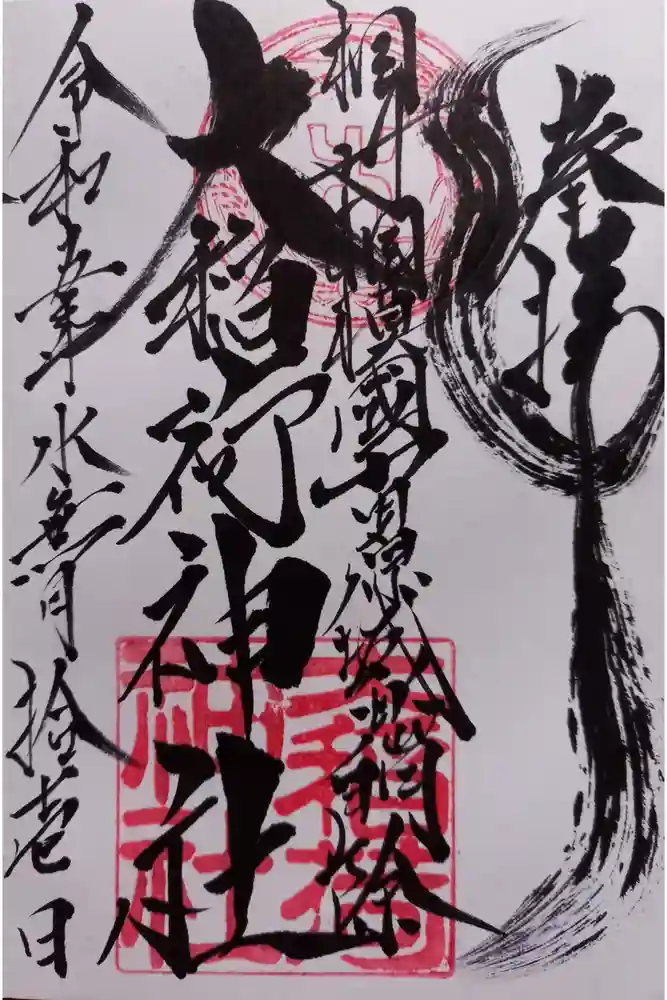 奉拝
相模國小田原城
大稲荷神社
令和五年水無月拾壱日
大稲荷神社